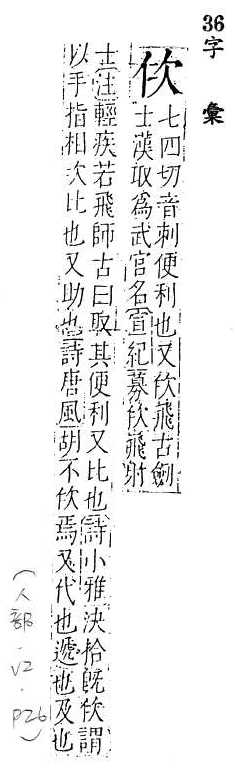 36字彙
佽 七四切音刺便利也又佽飛古劍
士漢取爲武官名宣紀募佽飛射
士注輕疾若飛師古曰取其便利又比也詩小雅決拾既佽謂
以手指相次比也又助也詩唐風胡不佽焉又代也遞也及也
(人部.v2.p26)